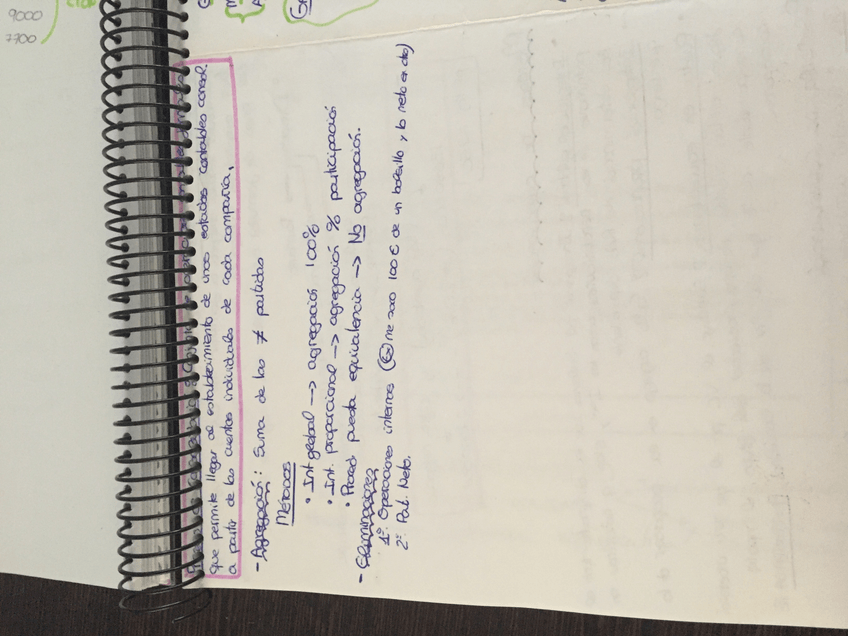 que permite llegar al establecimiento de unos estados contables consol.
a partir de las cuentas individuales de cada compañia.
- Agregación: Suma de las ≠ partidas
Métodos
• Int. global → agregación 100%
• Int. proporcional → agregación % participación
• Proced. puesta equivalencia → No agregación.
- Eliminaciones
1º Operaciones internas me saco 100€ de un bolsillo, y lo meto en otro)
2º Pat. Neto.
9000
7700